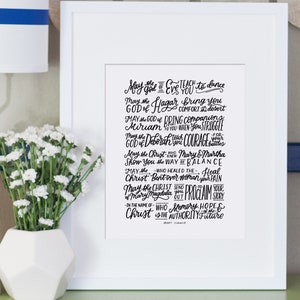 May the God of Eve TEACH YOU to dance
May the GOD OF Hagar bring You COMFORT IN THE desert
MAY THE GOD OF Miriam BRING companions TO YOU WHEN YOU STRUGGLE
May the GOD OF Deborah COURAGE
May the Christ Mary & Martha Show You the WAY OF BALANCE
MAY THE Christ WHO HEALED THE Bent-over Woman Heal YOUR PAIN
May the CHRIST of Mary Magdala SEND YOU OUT TO PROCLAIM YOUR
IN THE NAME OF Christ WHO IS THE Memory, HOPE & AUTHORITY Future